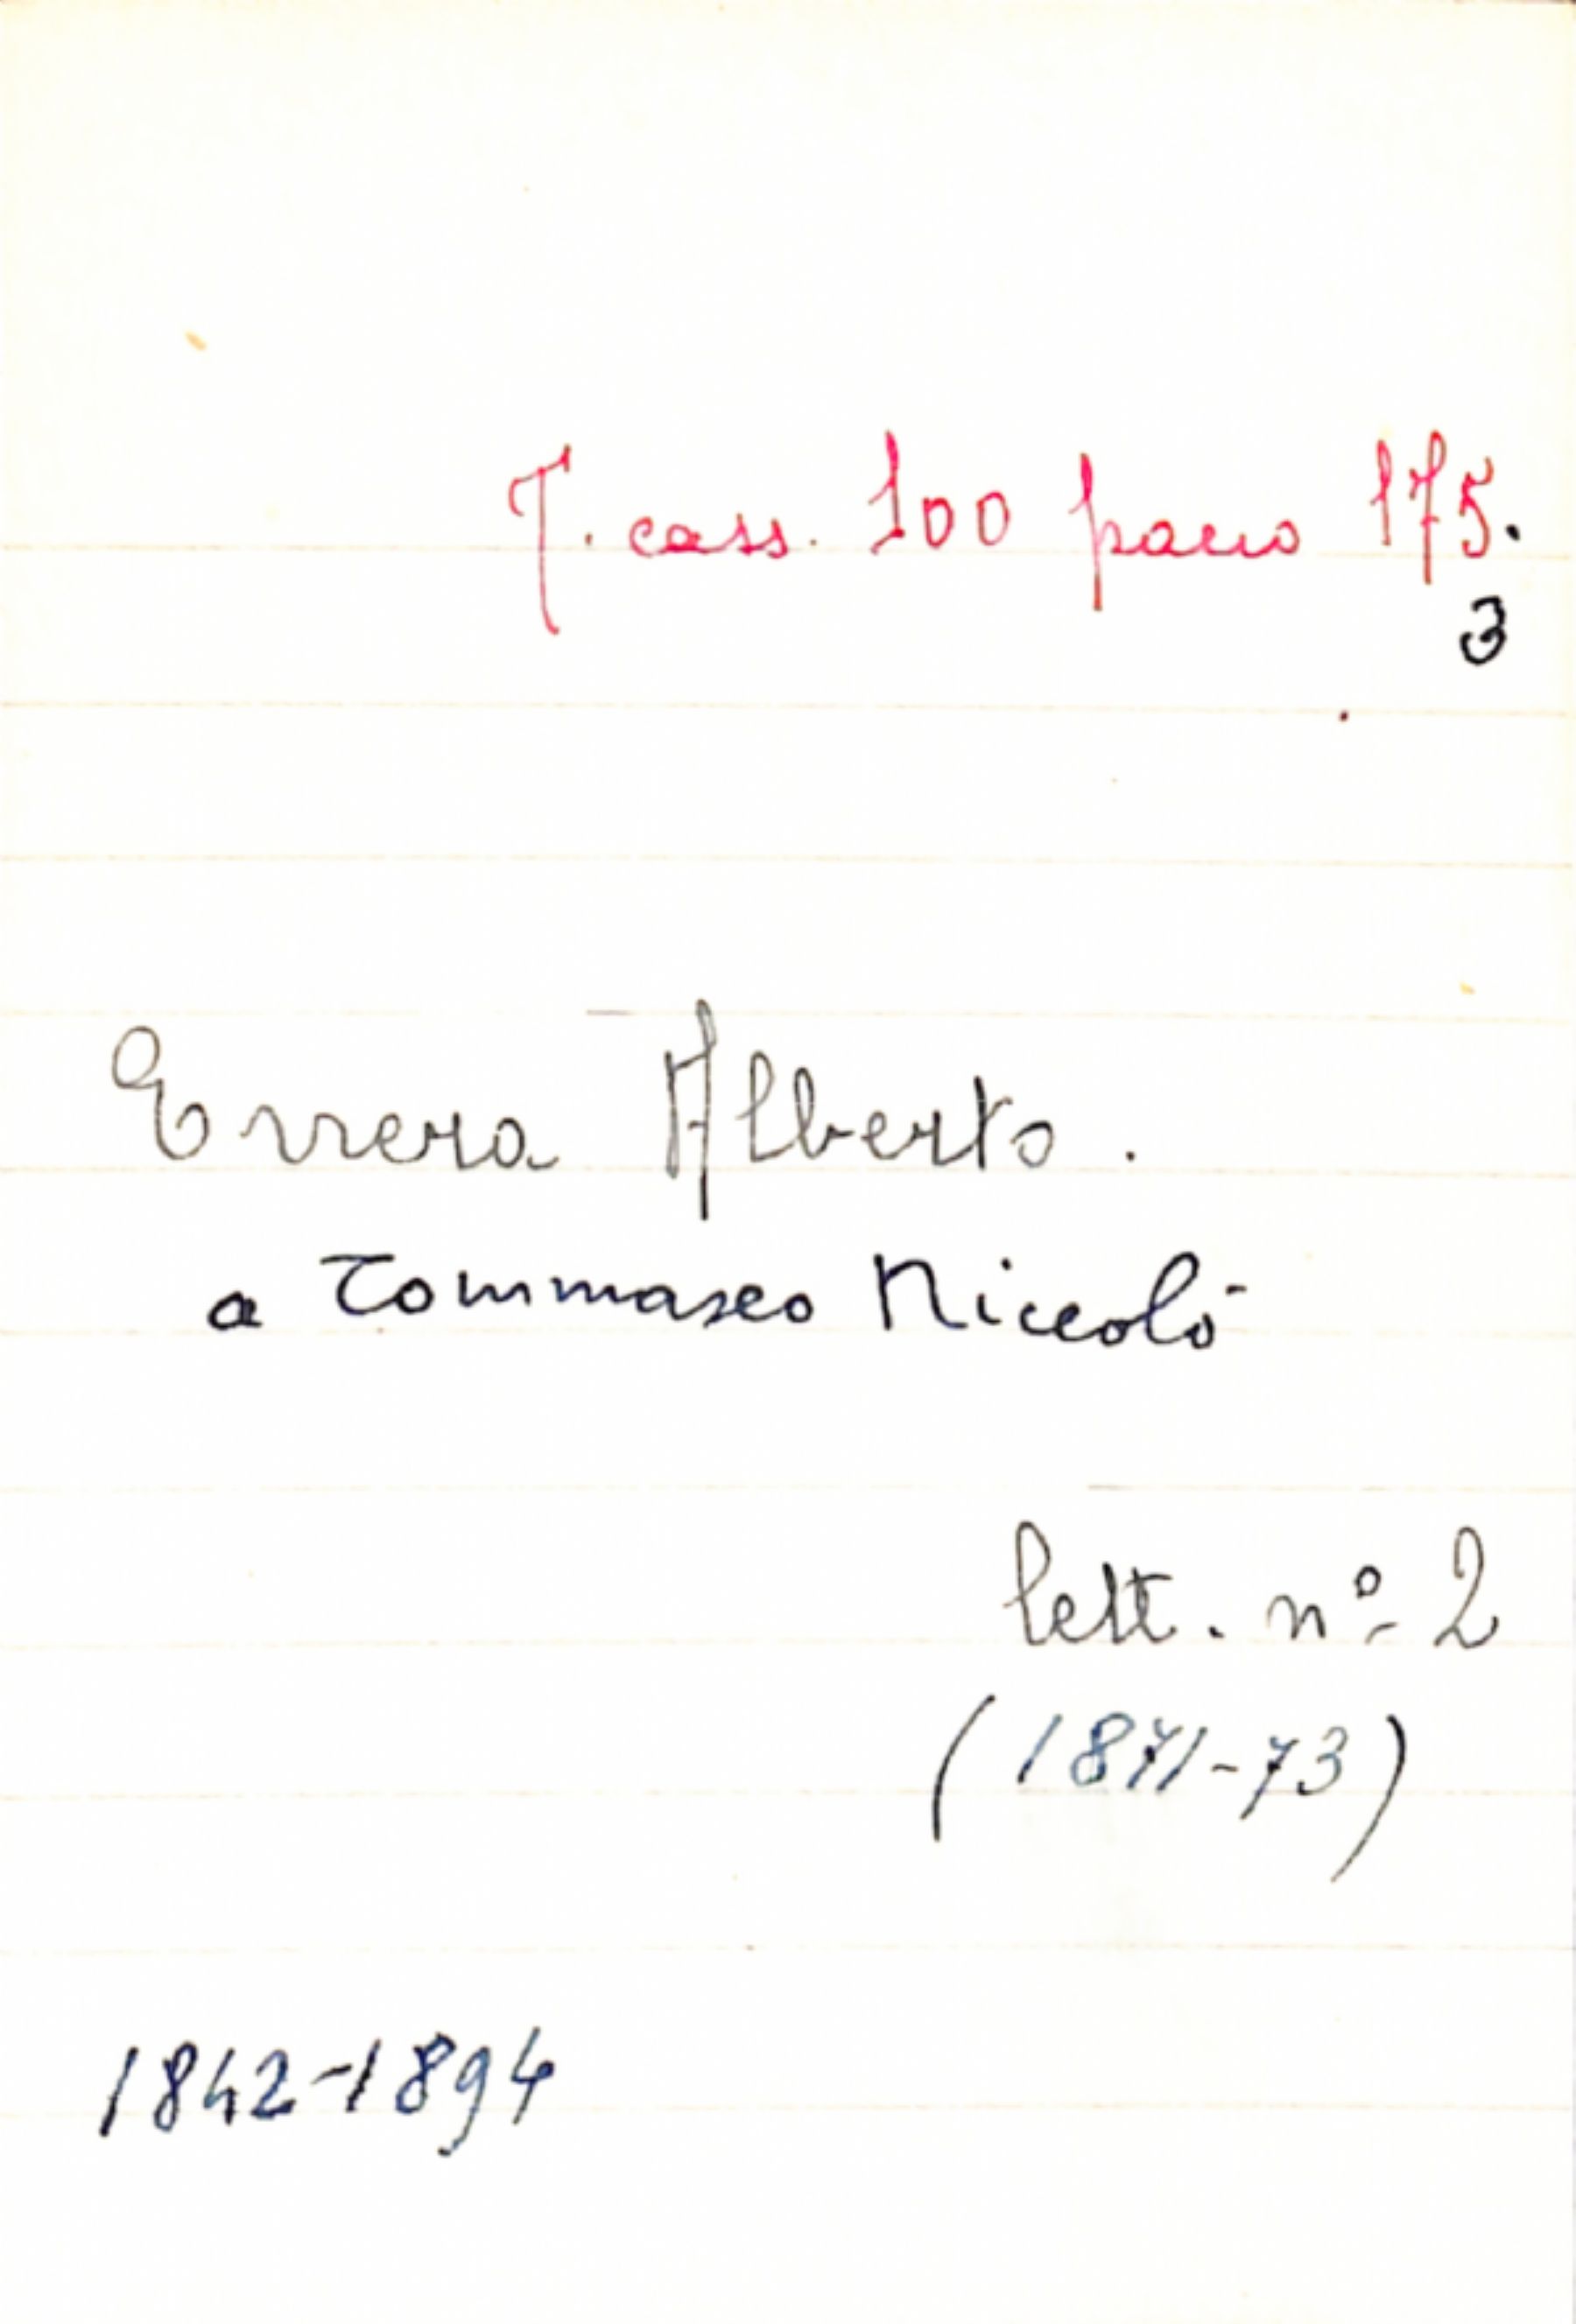 T. cass. 100 pacco 175.
3
Errera Alberto.
a Tommaseo Niccolò
lett. nº 2
(1871-73)
1842-1894